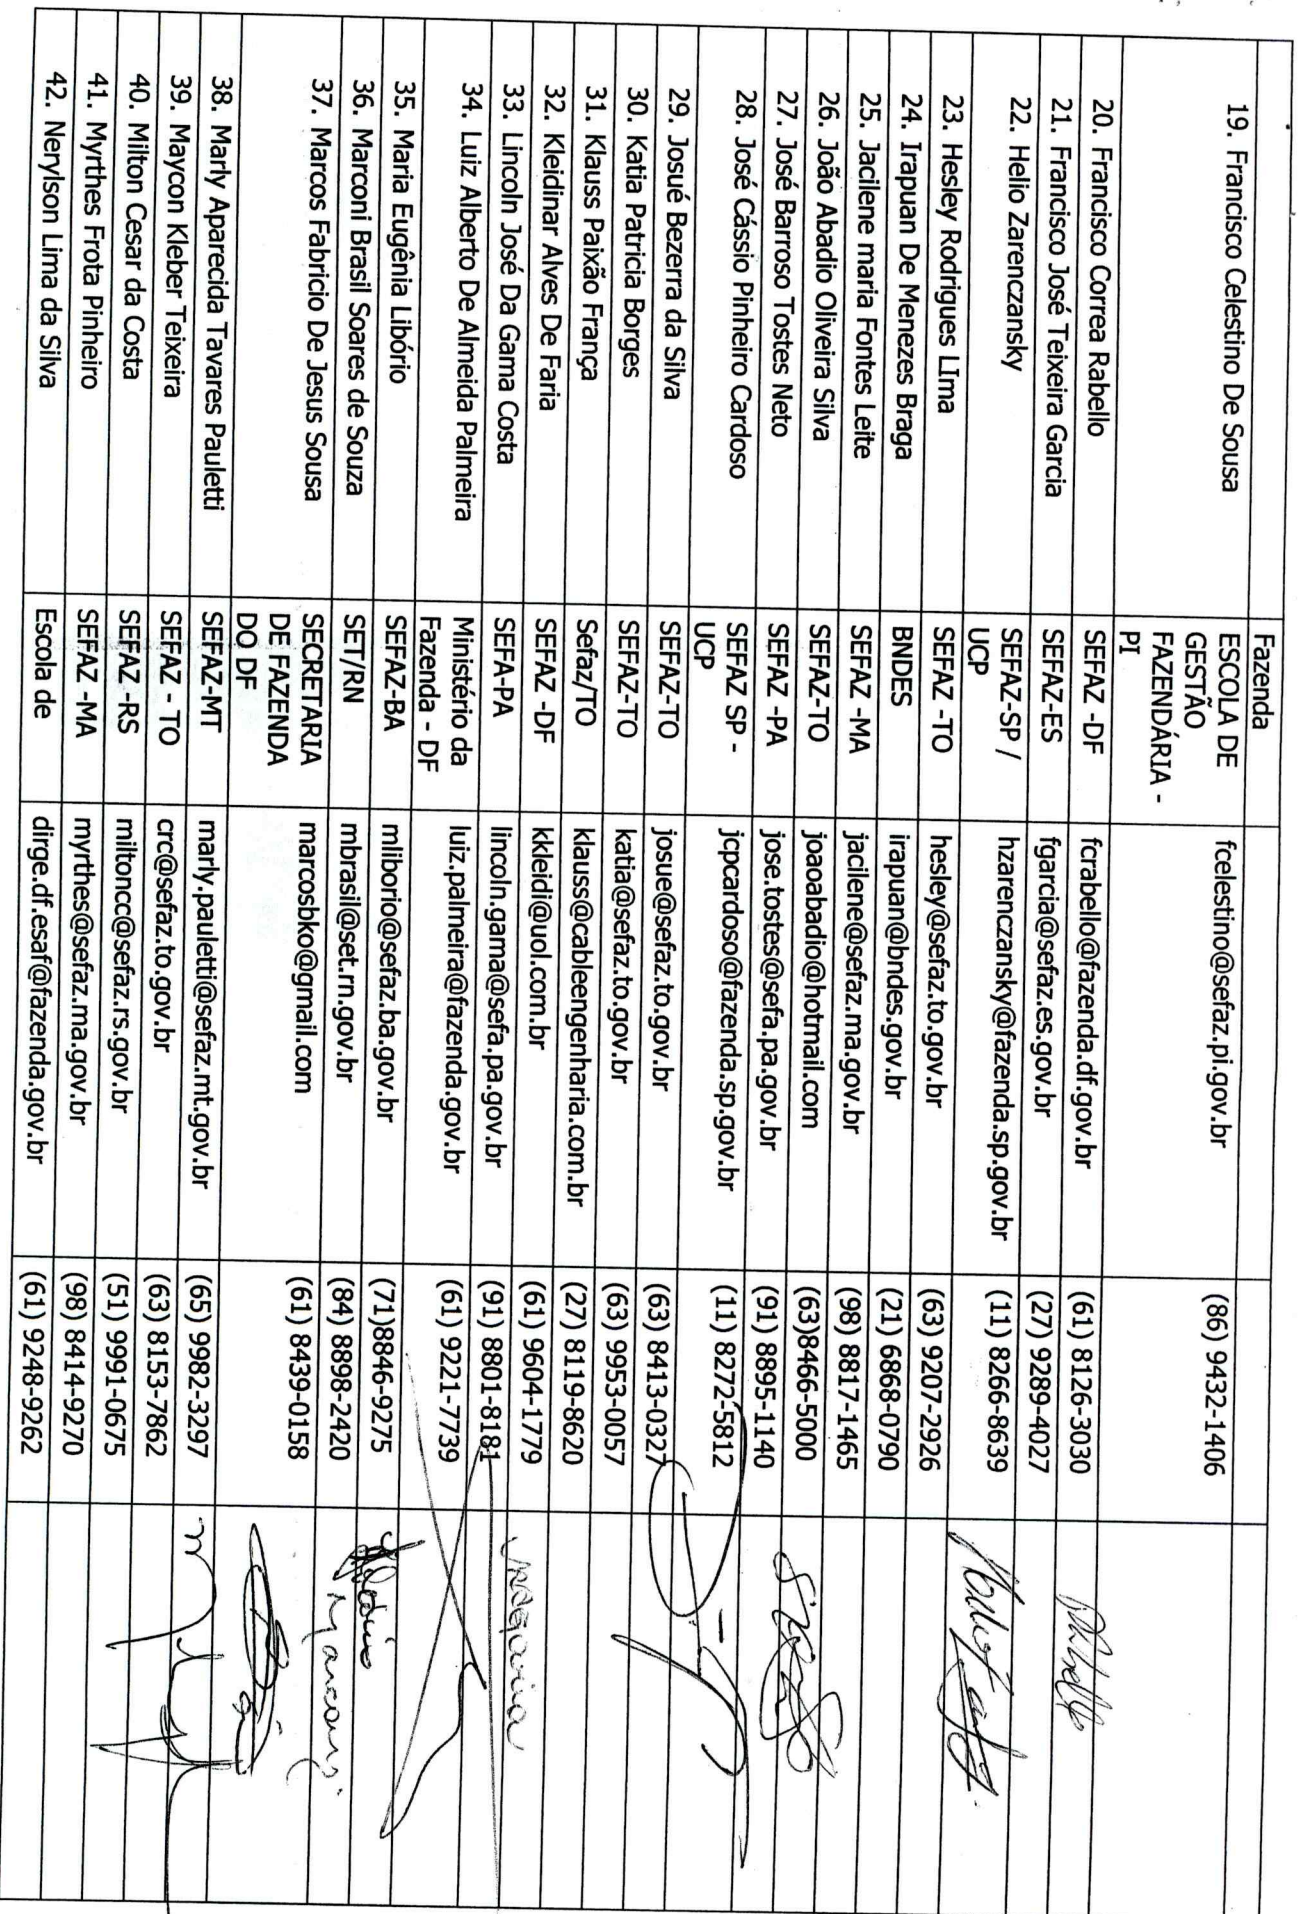 Fazenda
19. Francisco Celestino De Sousa ESCOLA DE fcelestino@sefaz.pi.gov.br (86) 9432-1406
GESTÃO
FAZENDÁRIA -
PI
20. Francisco Correa Rabello SEFAZ -DF fcrabello@fazenda.df.gov.br (61) 8126-3030
21. Francisco José Teixeira Garcia SEFAZ-ES fgarcia@sefaz.es.gov.br (27) 9289-4027
22. Helio Zarenczansky SEFAZ-SP / hzarenczansky@fazenda.sp.gov.br (11) 8266-8639
UCP
23. Hesley Rodrigues LIma SEFAZ -TO hesley@sefaz.to.gov.br (63) 9207-2926
24. Irapuan De Menezes Braga BNDES irapuan@bndes.gov.br (21) 6868-0790
25. Jacilene maria Fontes Leite SEFAZ -MA jacilene@sefaz.ma.gov.br (98) 8817-1465
26. João Abadio Oliveira Silva SEFAZ-TO joaoabadio@hotmail.com (63)8466-5000
27. José Barroso Tostes Neto SEFAZ -PA jose.tostes@sefa.pa.gov.br (91) 8895-1140
28. José Cássio Pinheiro Cardoso SEFAZ SP - jcpcardoso@fazenda.sp.gov.br (11) 8272-5812
UCP
29. Josué Bezerra da Silva SEFAZ-TO josue@sefaz.to.gov.br (63) 8413-0327
30. Katia Patricia Borges SEFAZ-TO katia@sefaz.to.gov.br (63) 9953-0057
31. Klauss Paixão França Sefaz/TO klauss@cableengenharia.com.br (27) 8119-8620
32. Kleidinar Alves De Faria SEFAZ -DF kkleidi@uol.com.br (61) 9604-1779
33. Lincoln José Da Gama Costa SEFA-PA lincoln.gama@sefa.pa.gov.br (91) 8801-8181
34. Luiz Alberto De Almeida Palmeira Ministério da luiz.palmeira@fazenda.gov.br (61) 9221-7739
Fazenda - DF
35. Maria Eugênia Libório SEFAZ-BA mliborio@sefaz.ba.gov.br (71)8846-9275
36. Marconi Brasil Soares de Souza SET/RN mbrasil@set.rn.gov.br (84) 8898-2420 Marconi
37. Marcos Fabricio De Jesus Sousa SECRETARIA marcosbko@gmail.com (61) 8439-0158
DE FAZENDA
DO DF
38. Marly Aparecida Tavares Pauletti SEFAZ-MT marly.pauletti@sefaz.mt.gov.br (65) 9982-3297
39. Maycon Kleber Teixeira SEFAZ - TO crc@sefaz.to.gov.br (63) 8153-7862
40. Milton Cesar da Costa SEFAZ -RS miltoncc@sefaz.rs.gov.br (51) 9991-0675
41. Myrthes Frota Pinheiro SEFAZ -MA myrthes@sefaz.ma.gov.br (98) 8414-9270
42. Nerylson Lima da Silva Escola de dirge.df.esaf@fazenda.gov.br (61) 9248-9262